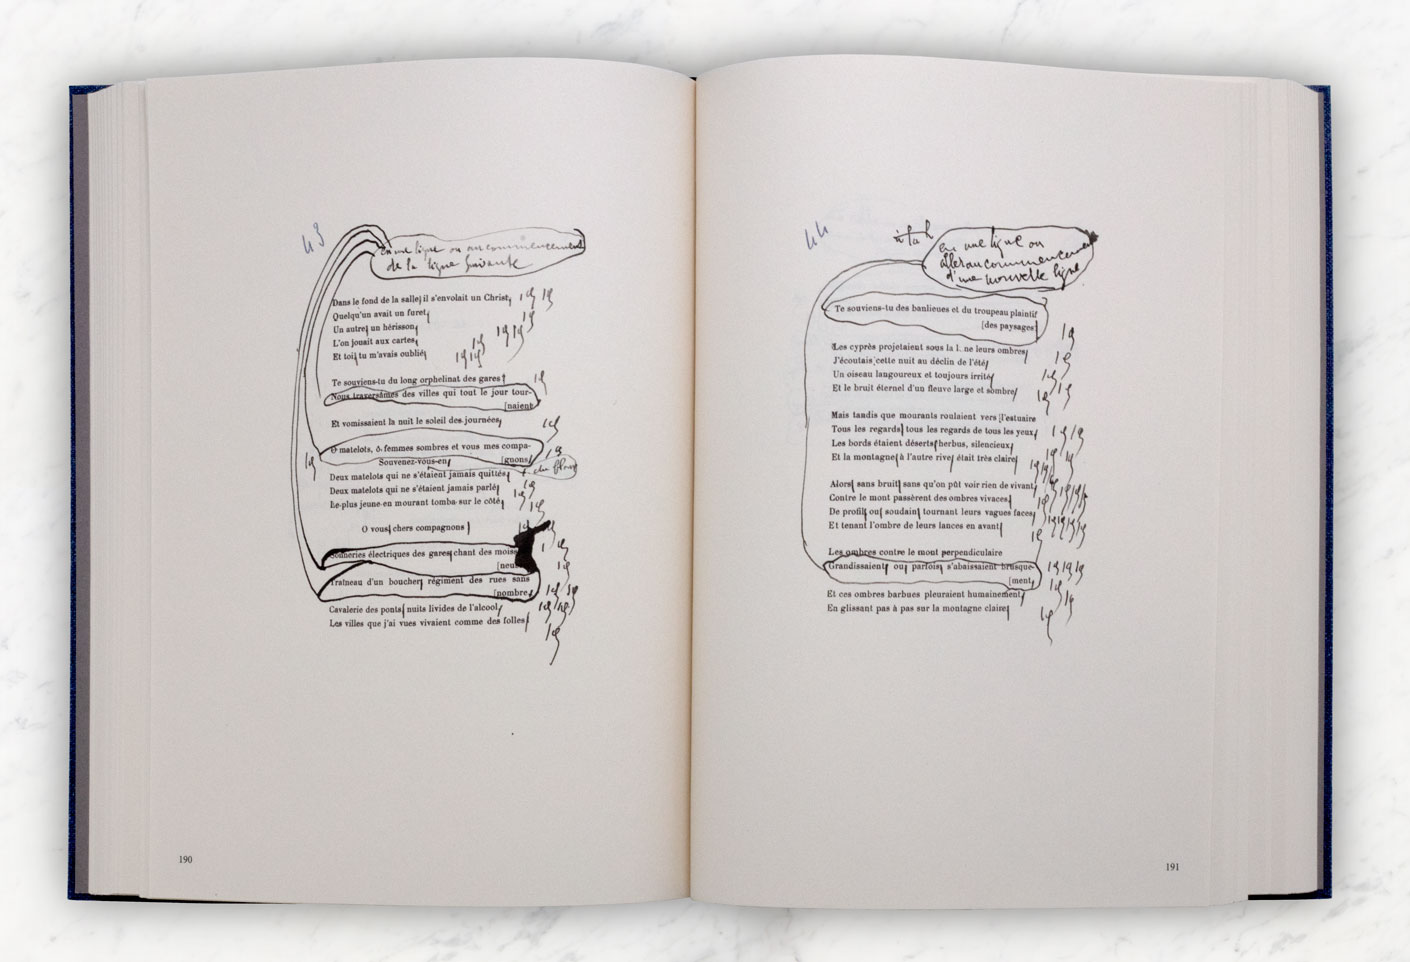 43
en une ligne ou au commencement
de la ligne suivante
Dans le fond de la salle il s'envolait un Christ,
Quelqu'un avait un furet,
Un autre, un hérisson,
L'on jouait aux cartes,
Et toi, tu m'avais oublié,
Te souviens-tu du long orphelinat des gares?
Nous traversâmes des villes qui tout le jour tour-
[naient
Et vomissaient la nuit le soleil des journées,
O matelots, ô femmes sombres et vous mes compa-
[gnons,
Souvenez-vous-en,
Deux matelots qui ne s'étaient jamais quittés,
Deux matelots qui ne s'étaient jamais parlé,
Le plus jeune en mourant tomba sur le côté,
O vous, chers compagnons,
Sonneries électriques des gares, chant des moiss
[neus
Traîneau d'un boucher, régiment des rues sans
[nombre,
Cavalerie des ponts, nuits livides de l'alcool,
Les villes que j'ai vues vivaient comme des folles,
190
44
en une ligne ou
aller au commencement
d'une nouvelle ligne
Te souviens-tu des banlieues et du troupeau plaintif
[des paysages?
Les cyprès projetaient sous la l ne leurs ombres,
J'écoutais cette nuit au déclin de l'été,
Un oiseau langoureux et toujours irrité,
Et le bruit éternel d'un fleuve large et sombre,
Mais tandis que mourants roulaient vers l'estuaire
Tous les regards, tous les regards de tous les yeux,
Les bords étaient déserts, herbus, silencieux,
Et la montagne, à l'autre rive, était très claire,
Alors, sans bruit, sans qu'on pût voir rien de vivant,
Contre le mont passèrent des ombres vivaces,
De profil, ou, soudain, tournant leurs vagues faces,
Et tenant l'ombre de leurs lances en avant,
Les ombres contre le mont perpendiculaire
Grandissaient, ou, parfois, s'abaissaient brusque-
[ment,
Et ces ombres barbues pleuraient humainement,
En glissant pas à pas sur la montagne claire,
191